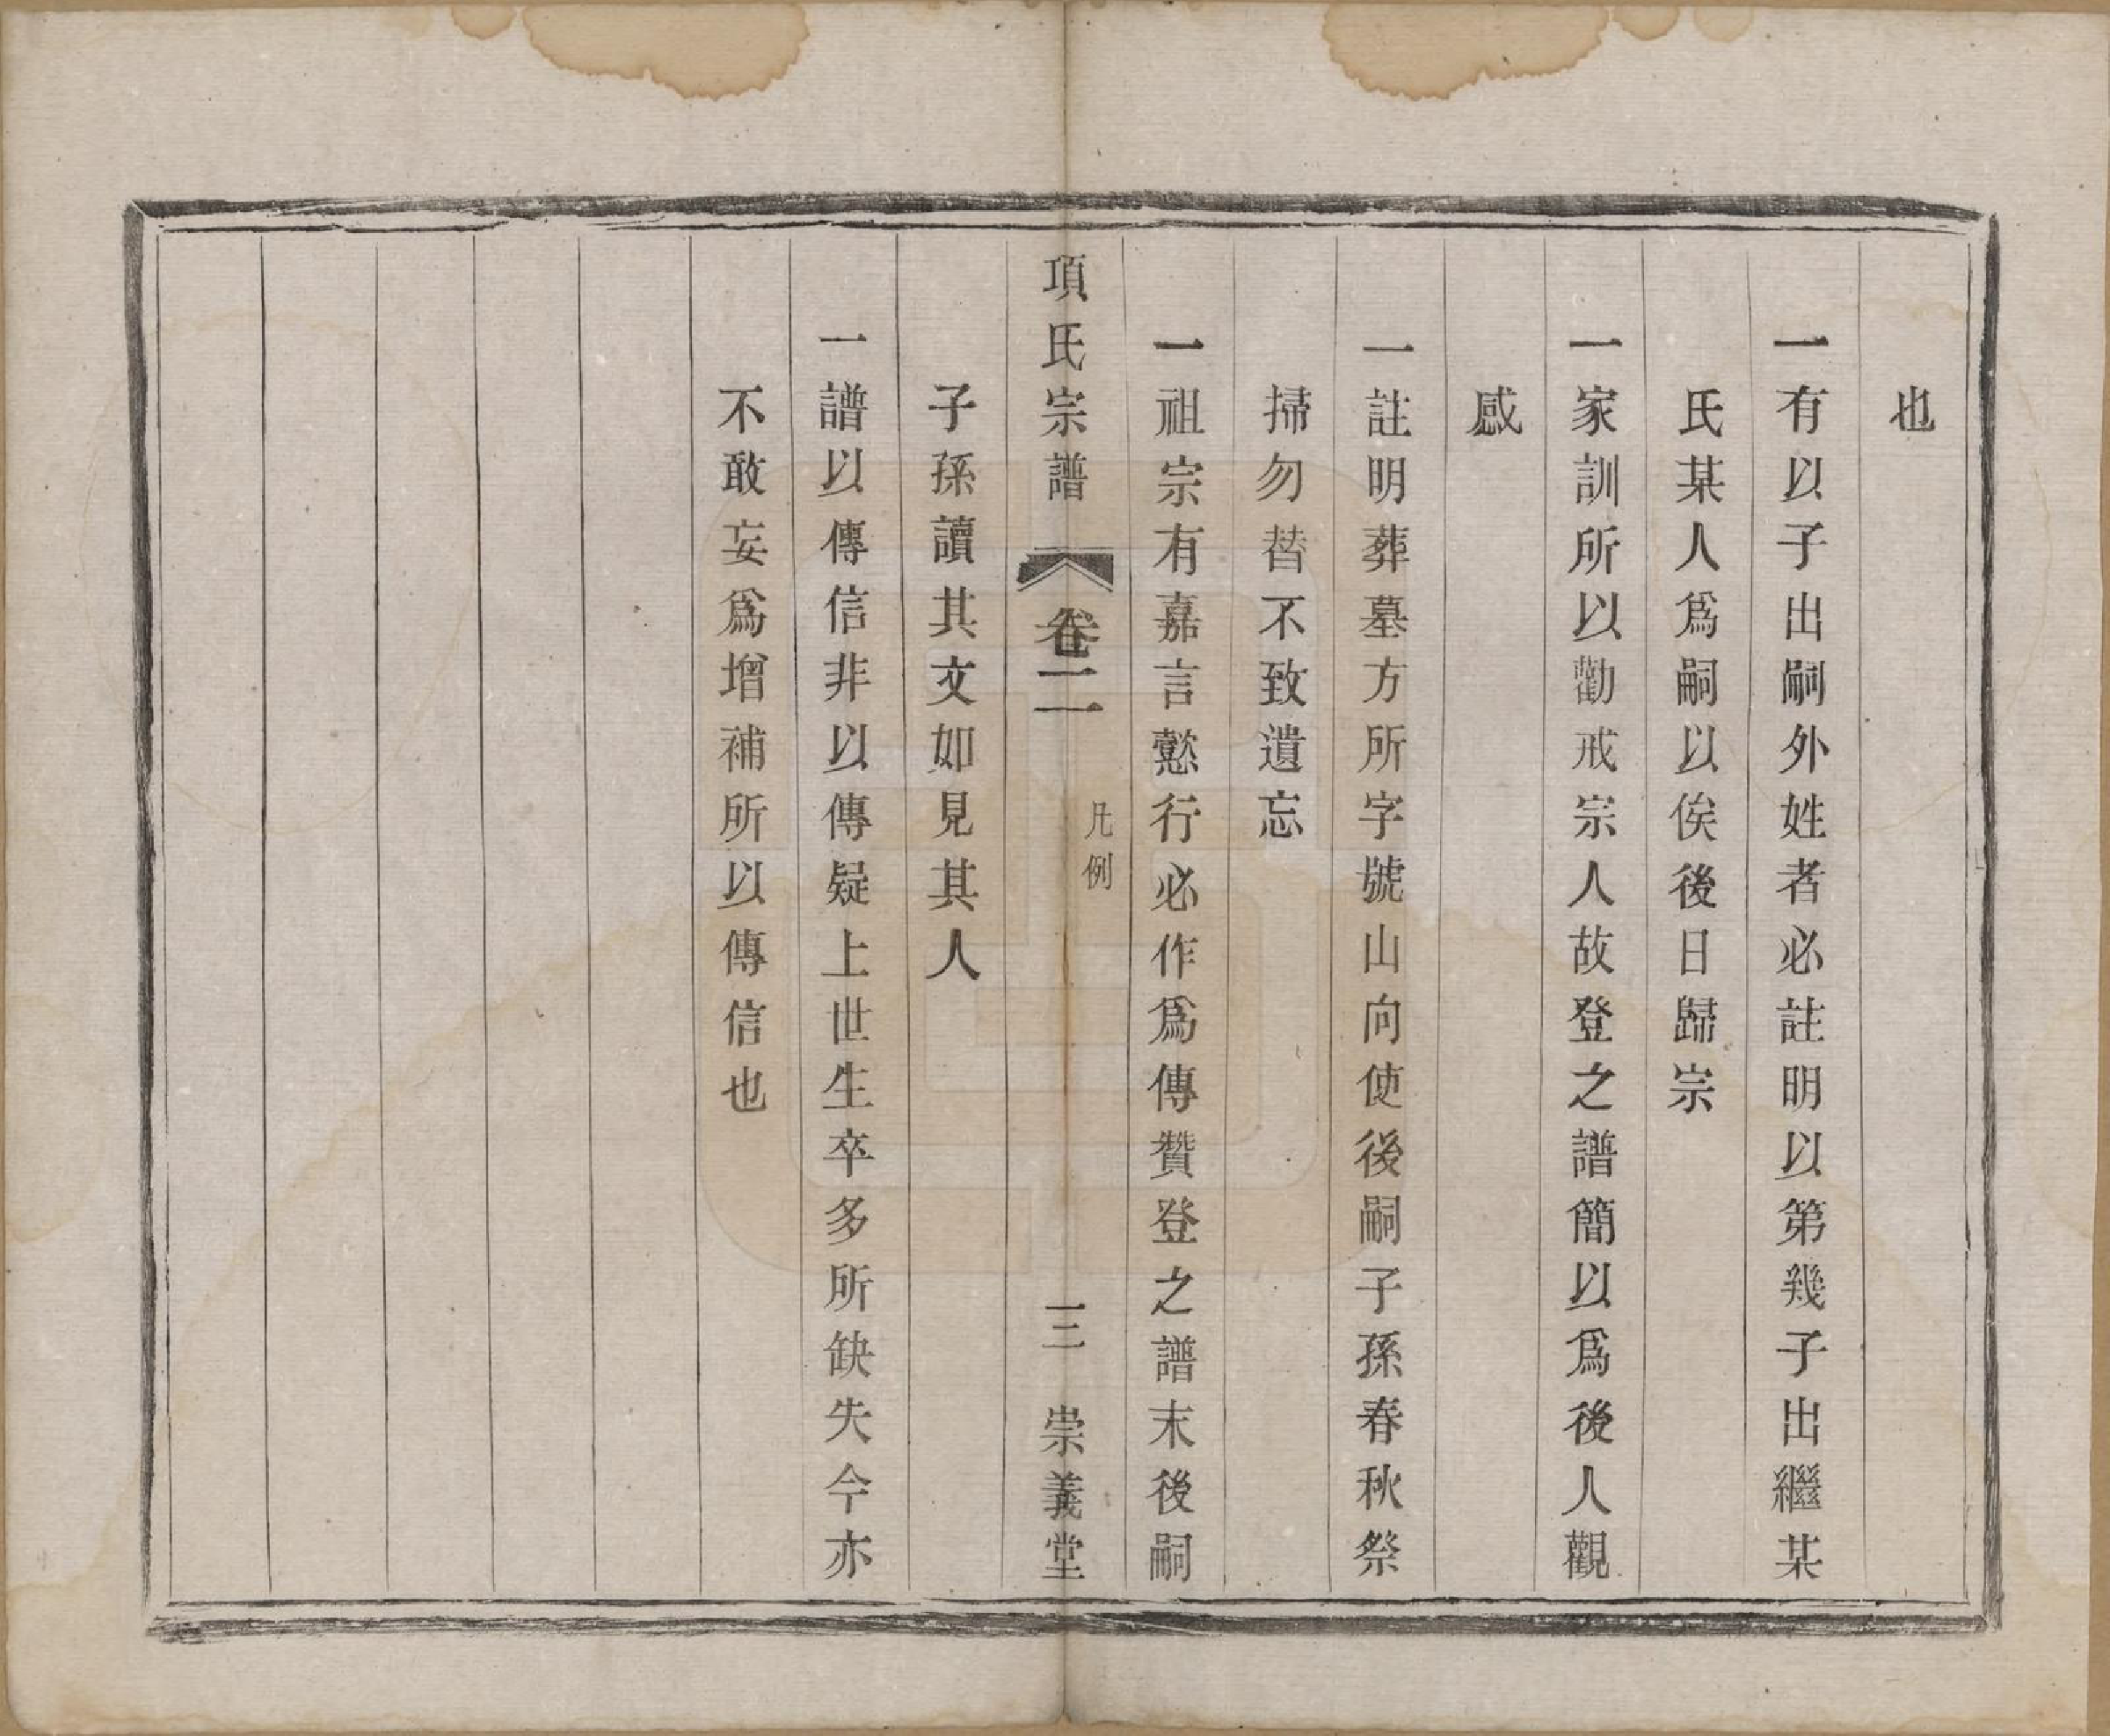 也
一有以子出嗣外姓者必註明以第幾子出繼某
氏某人爲嗣以俟後日歸宗
一家訓所以勸戒宗人故登之譜簡以爲後人觀
感
一註明葬墓方所字號山向使後嗣子孫春秋祭
掃勿替不致遺忘
一祖宗有嘉言懿行必作爲傳贊登之譜末後嗣
項氏宗譜 卷二 凡例 三 崇義堂
子孫讀其文如見其人
一譜以傳信非以傳疑上世生卒多所缺失今亦
不敢妄爲增補所以傳信也